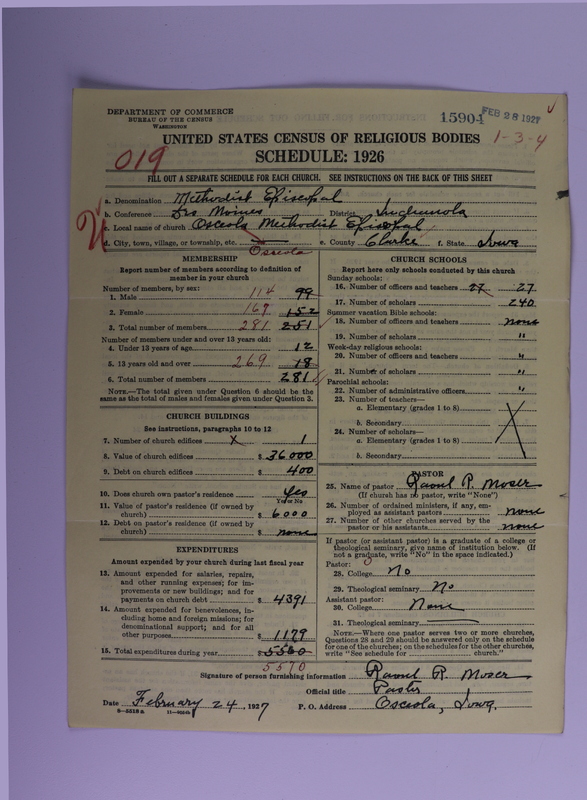 DEPARTMENT OF COMMERCE
BUREAU OF THE CENSUS
WASHINGTON
15904 FEB 28 1927
1-3-4
UNITED STATES CENSUS OF RELIGIOUS BODIES
SCHEDULE: 1926
019
FILL OUT A SEPARATE SCHEDULE FOR EACH CHURCH. SEE INSTRUCTIONS ON THE BACK OF THIS SHEET
a. Denomination Methodist Episcopal
b. Conference Des Moines District Indianola
c. Local name of church Osceola Methodist Episcopal
d. City, town, village, or township, etc. e. County Clarke f. State Iowa
Osceola
MEMBERSHIP
Report number of members according to definition of
member in your church
Number of members, by sex:
1. Male 114 99
2. Female 167 152
3. Total number of members 281 251
Number of members under and over 13 years old:
4. Under 13 years of age 12
5. 13 years old and over 269 18
6. Total number of members 281
NOTE.—The total given under Question 6 should be the
same as the total of males and females given under Question 3.
CHURCH BUILDINGS
See instructions, paragraphs 10 to 12
7. Number of church edifices X 1
8. Value of church edifices $ 36000
9. Debt on church edifices $ 400
10. Does church own pastor's residence Yes
Yes or No
11. Value of pastor's residence (if owned by
church) $ 6000
12. Debt on pastor's residence (if owned by
church) $ none
EXPENDITURES
Amount expended by your church during last fiscal year
13. Amount expended for salaries, repairs,
and other running expenses; for im-
provements or new buildings; and for
payments on church debt $ 4391
14. Amount expended for benevolences, in-
cluding home and foreign missions; for
denominational support; and for all
other purposes $ 1179
15. Total expenditures during year $ 5560
5570
CHURCH SCHOOLS
Report here only schools conducted by this church
Sunday schools:
16. Number of officers and teachers 27 27
17. Number of scholars 240
Summer vacation Bible schools:
18. Number of officers and teachers none
19. Number of scholars "
Week-day religious schools:
20. Number of officers and teachers "
21. Number of scholars "
Parochial schools:
22. Number of administrative officers "
23. Number of teachers—
a. Elementary (grades 1 to 8)
b. Secondary
24. Number of scholars—
a. Elementary (grades 1 to 8)
b. Secondary
PASTOR
25. Name of pastor Raoul R. Moser
(If church has no pastor, write "None")
26. Number of ordained ministers, if any, em-
ployed as assistant pastors none
27. Number of other churches served by the
pastor or his assistants none
If pastor (or assistant pastor) is a graduate of a college or
theological seminary, give name of institution below. (If
not a graduate, write "No" in the space indicated.)
Pastor:
28. College No
29. Theological seminary No
Assistant pastor:
30. College None
31. Theological seminary
NOTE.—Where one pastor serves two or more churches,
Questions 28 and 29 should be answered only on the schedule
for one of the churches; on the schedules for the other churches,
write "See schedule for church."
Signature of person furnishing information Raoul R. Moser
Official title Pastor
Date February 24, 1927 P. O. Address Osceola, Iowa.